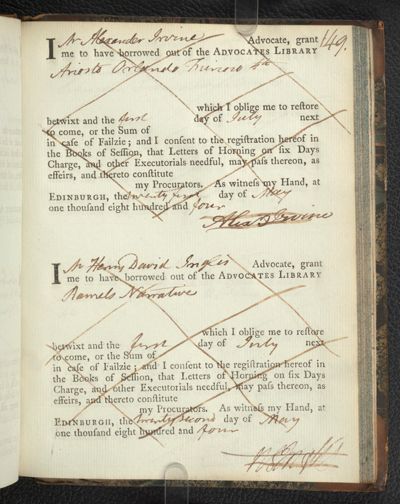 149.
I Mr Alexander Irvine Advocate, grant
me to have borrowed out of the ADVOCATES LIBRARY
Ariosto Orlando Furioso 4to
which I oblige me to reſtore
betwixt and the first day of July next
to come, or the Sum of
in caſe of Failzie; and I conſent to the regiſtration hereof in
the Books of Seſſion, that Letters of Horning on ſix Days
Charge, and other Executorials needful, may paſs thereon, as
effeirs, and thereto conſtitute
my Procurators. As witneſs my Hand, at
EDINBURGH, the twenty first day of May
one thouſand eight hundred and four
Alexr Irvine
I Mr Henry David Inglis Advocate, grant
me to have borrowed out of the ADVOCATES LIBRARY
Ramels Narrative
which I oblige me to reſtore
betwixt and the first day of July next
to come, or the Sum of
in caſe of Failzie; and I conſent to the regiſtration hereof in
the Books of Seſſion, that Letters of Horning on ſix Days
Charge, and other Executorials needful, may paſs thereon, as
effeirs, and thereto conſtitute
my Procurators. As witneſs my Hand, at
EDINBURGH, the twenty second day of May
one thouſand eight hundred and four